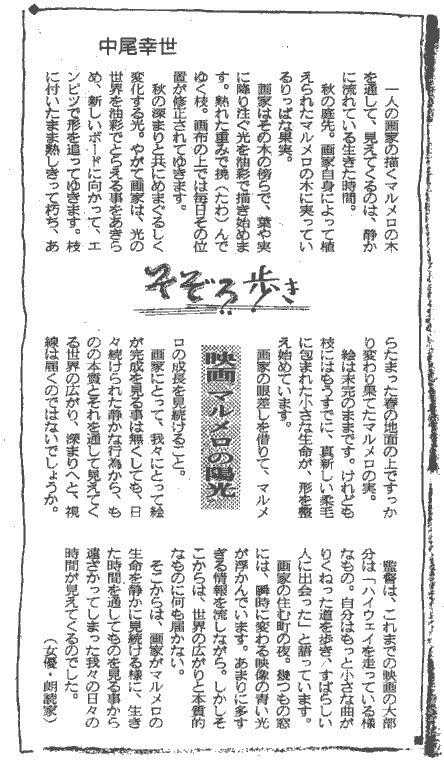 中尾幸世
そぞろ歩き
映画 マルメロの陽光
一人の画家の描くマルメロの木
を通して、見えてくるのは、静か
に流れている生きた時間。
秋の庭先。画家自身によって植
えられたマルメロの木に実ってい
るりっぱな果実。
画家はその木の傍らで、葉や実
に降り注ぐ光を油彩で描き始めま
す。熟れた重みで撓（たわ）んで
ゆく枝。画布の上では毎日その位
置が修正されてゆきます。
秋の深まりと共にめまぐるしく
変化する光。やがて画家は、光の
世界を油彩でとらえる事をあきら
め、新しいボードに向かって、エ
ンピツで形を追ってゆきます。枝
に付いたまま熟しきって朽ち、あ
らたまった春の地面の上ですっか
り変わり果てたマルメロの実。
絵は未完のままです。けれども
枝にはもうすでに、真新しい柔毛
に包まれた小さな生命が、形を整
え始めています。
画家の眼差しを借りて、マルメ
ロの成長を見続けること。
画家にとって、我々にとって絵
が完成を見る事は無くしても、日
々続けられた静かな行為から、も
のの本質とそれを通して見えてく
る世界の広がり、深まりへと、視
線は届くのではないでしょうか。
監督は、これまでの映画の大部
分は「ハイウェイを走っている様
なもの。自分はもっと小さな曲が
りくねった道を歩き、すばらしい
人に出会った」と語っています。
画家の住む町の夜。幾つもの窓
には、瞬時に変わる映像の青い光
が浮かんでいます。あまりに多す
ぎる情報を流しながら。しかしそ
こからは、世界の広がりと本質的
なものに何も届かない。
そこからは、画家がマルメロの
生命を静かに見続ける様に、生き
た時間を通してものを見る事から
遠ざかってしまった我々の日々の
時間が見えてくるのでした。
（女優・朗読家）